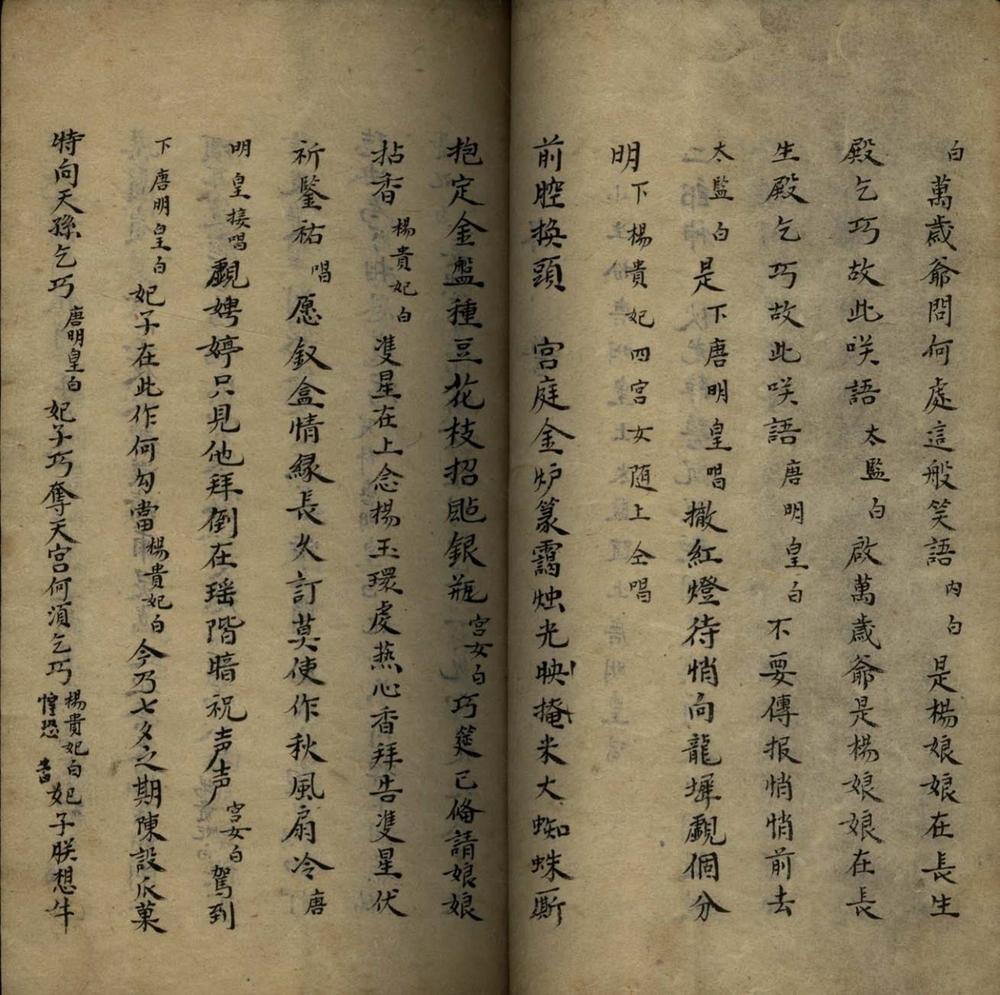 白萬歲爺問何處這般笑語內白是楊娘娘在長生
殿乞巧故此咲語太監白啟萬歲爺是楊娘娘在長
生殿乞巧故此咲語唐明皇白不要傳报悄悄前去
太監白是下唐明皇唱撤紅燈待悄向龍墀覷個分
明下楊貴妃四宮女随上仝唱
前腔换頭 宮庭金炉篆靄烛光映掩米大蜘蛛厮
抱定金盤種豆花枝招颭銀瓶宮女白巧筵已俻請娘娘
拈香楊貴妃白雙星在上念楊玉環虔爇心香拜告雙星伏
祈鍳祐唱愿釵盒情緣長久訂莫使作秋風扇冷唐
明皇接唱覷娉婷只見他拜倒在瑶階暗祝声声宮女白駕到
下唐明皇白妃子在此作何勾當楊貴妃白今乃七夕之期陳設瓜菓
特向天孫乞巧唐明皇白妃子巧奪天宮何須乞巧楊貴妃白惶恐妃子朕想牛